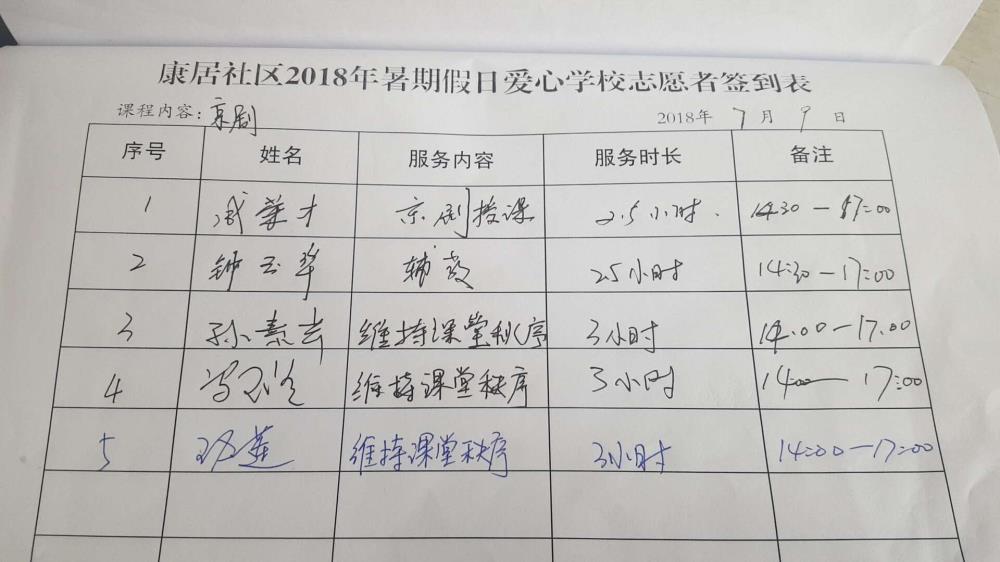 康居社区2018年暑期假日爱心学校志愿者签到表
课程内容：京剧 2018年 7 月 9 日
序号 姓名 服务内容 服务时长 备注
1 荣才 京剧授课 2.5小时. 14:30 — 17:00
2 钟玉华 辅教 2.5小时 14:30 — 17:00
3 孙素云 维持课堂秩序 3小时 14:00 — 17:00
4 冯 维持课堂秩序 3小时 1400 — 17:00
5 莲 维持课堂秩序 3小时 14:00 — 17:00